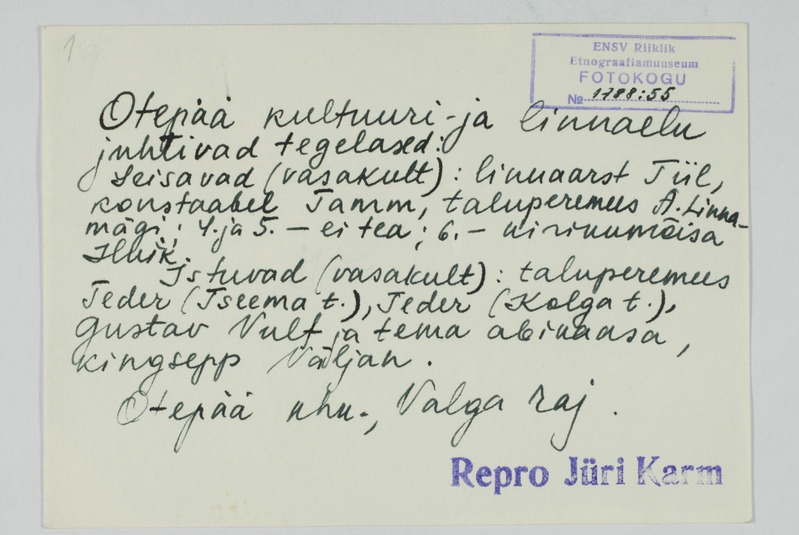 1
ENSV Riiklik
Etnograafiamuuseum
FOTOKOGU
№ 1788:55
Otepää kultuuri- ja linnaelu
juhtivad tegelased:
Seisavad (vasakult): linnaarst Tiil,
konstaabel Tamm, taluperemees A. Linna-
mägi; 4. ja 5. – ei tea; 6. – kirikumõisa
Istuvad (vasakult): taluperemees
Teder (Tseema t.), Teder (Kolga t.),
Gustav Vulf ja tema abikaasa,
kingsepp Väljan.
Otepää khn., Valga raj.
Repro Jüri Karm